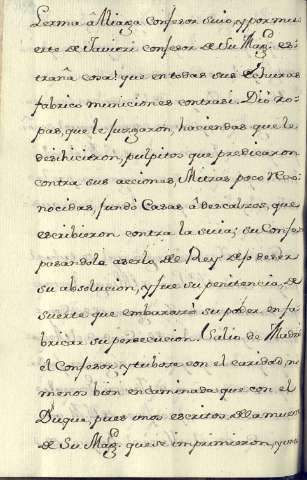 Lerma â Aliaga Confesor suio, y por mu
erte de Javierr confesor de Su Mag.d es
traña cosa! que en todas sus hechuras
fabrico municiones contra si. Dió ro
pas, que le juzgaron, haciendas que le
deshicieron, pulpitos que predicaron
contra sus acciones, Mitras poco reco
nocidas, fundó Casas á descalzos, que
escribieron contra la suia; su Confes
pasandole aserlo del Rey dejo de ser
su absolucion, y fue su penitencia, de
suerte que embarazó su poder en fa
bricar su persecucion. Salio de Madri
el Confesor, y tubose con el caridad, ni
menos bien encaminada que con el
Duque, pues unos escritos de la muer
de Su Mag.d que se imprimieron, y